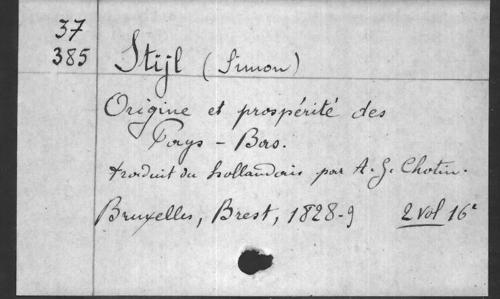 37
385
Stijl (Simon)
Origine et prospérité des
Pays-Bas.
traduit du hollandais par A. G. Chotin.
Bruxelles, Brest, 1828-9 2 vol 16°